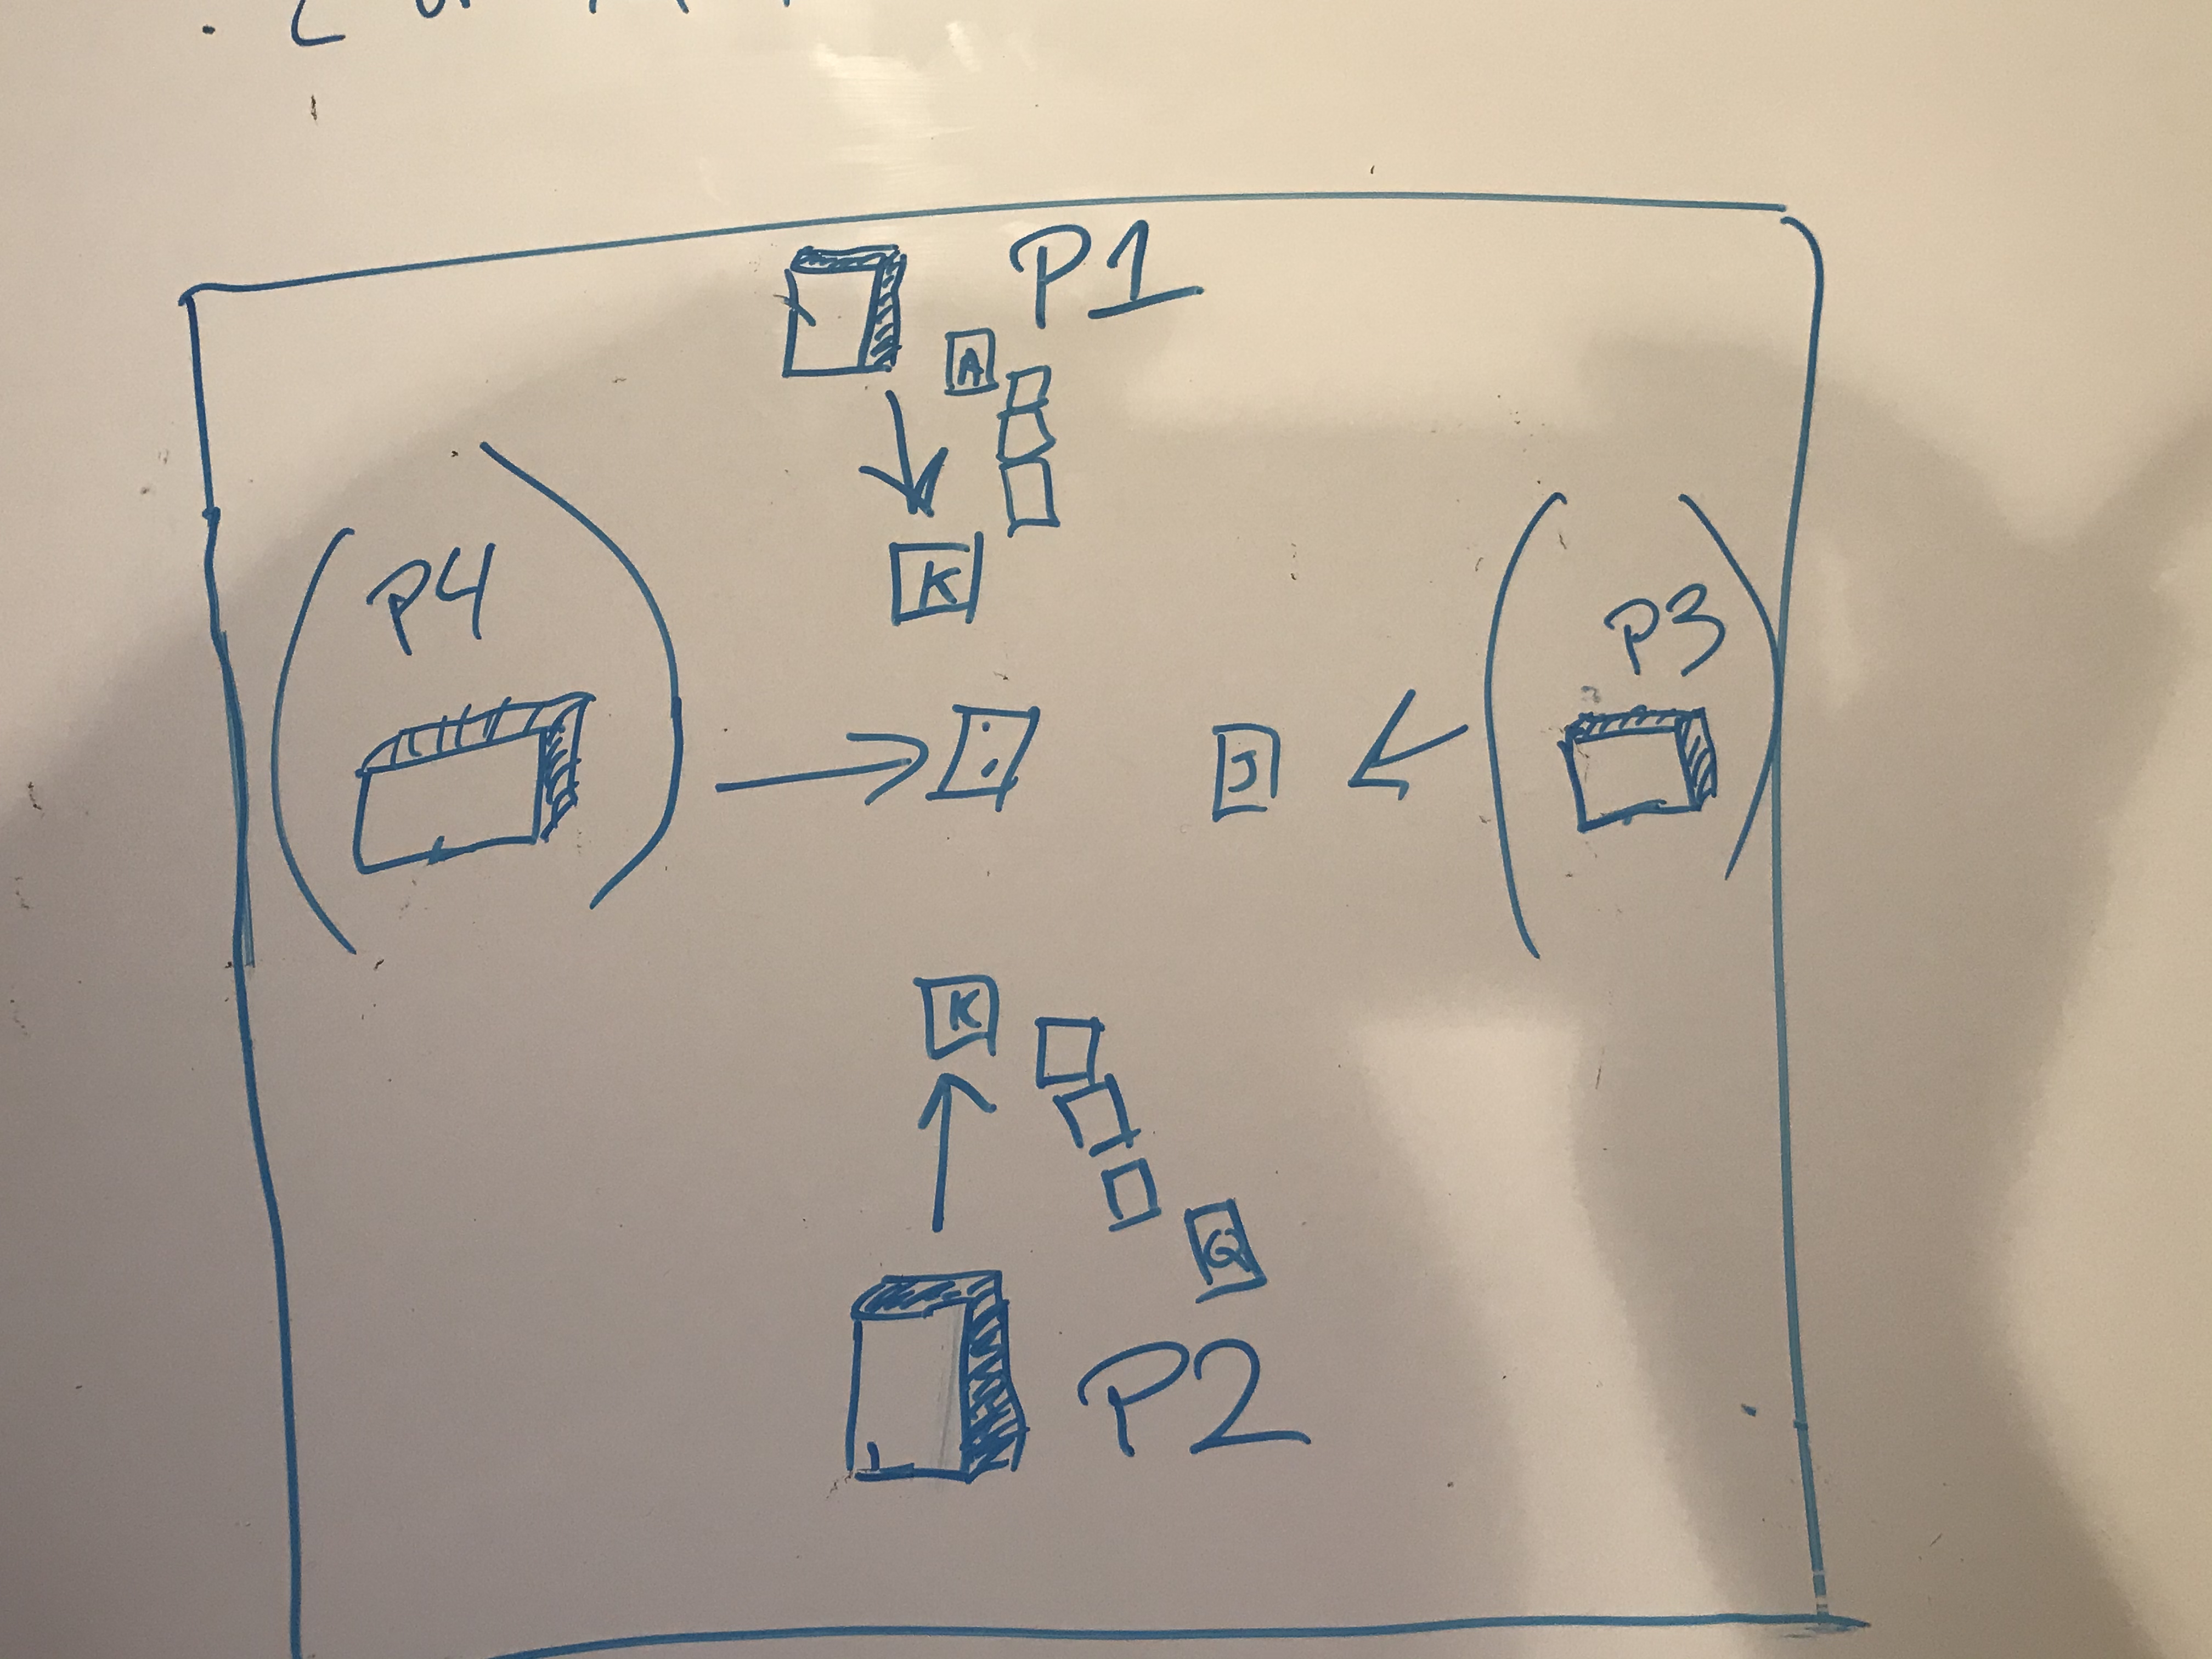 P1
A
K
P4
P3
J
K
Q
P2